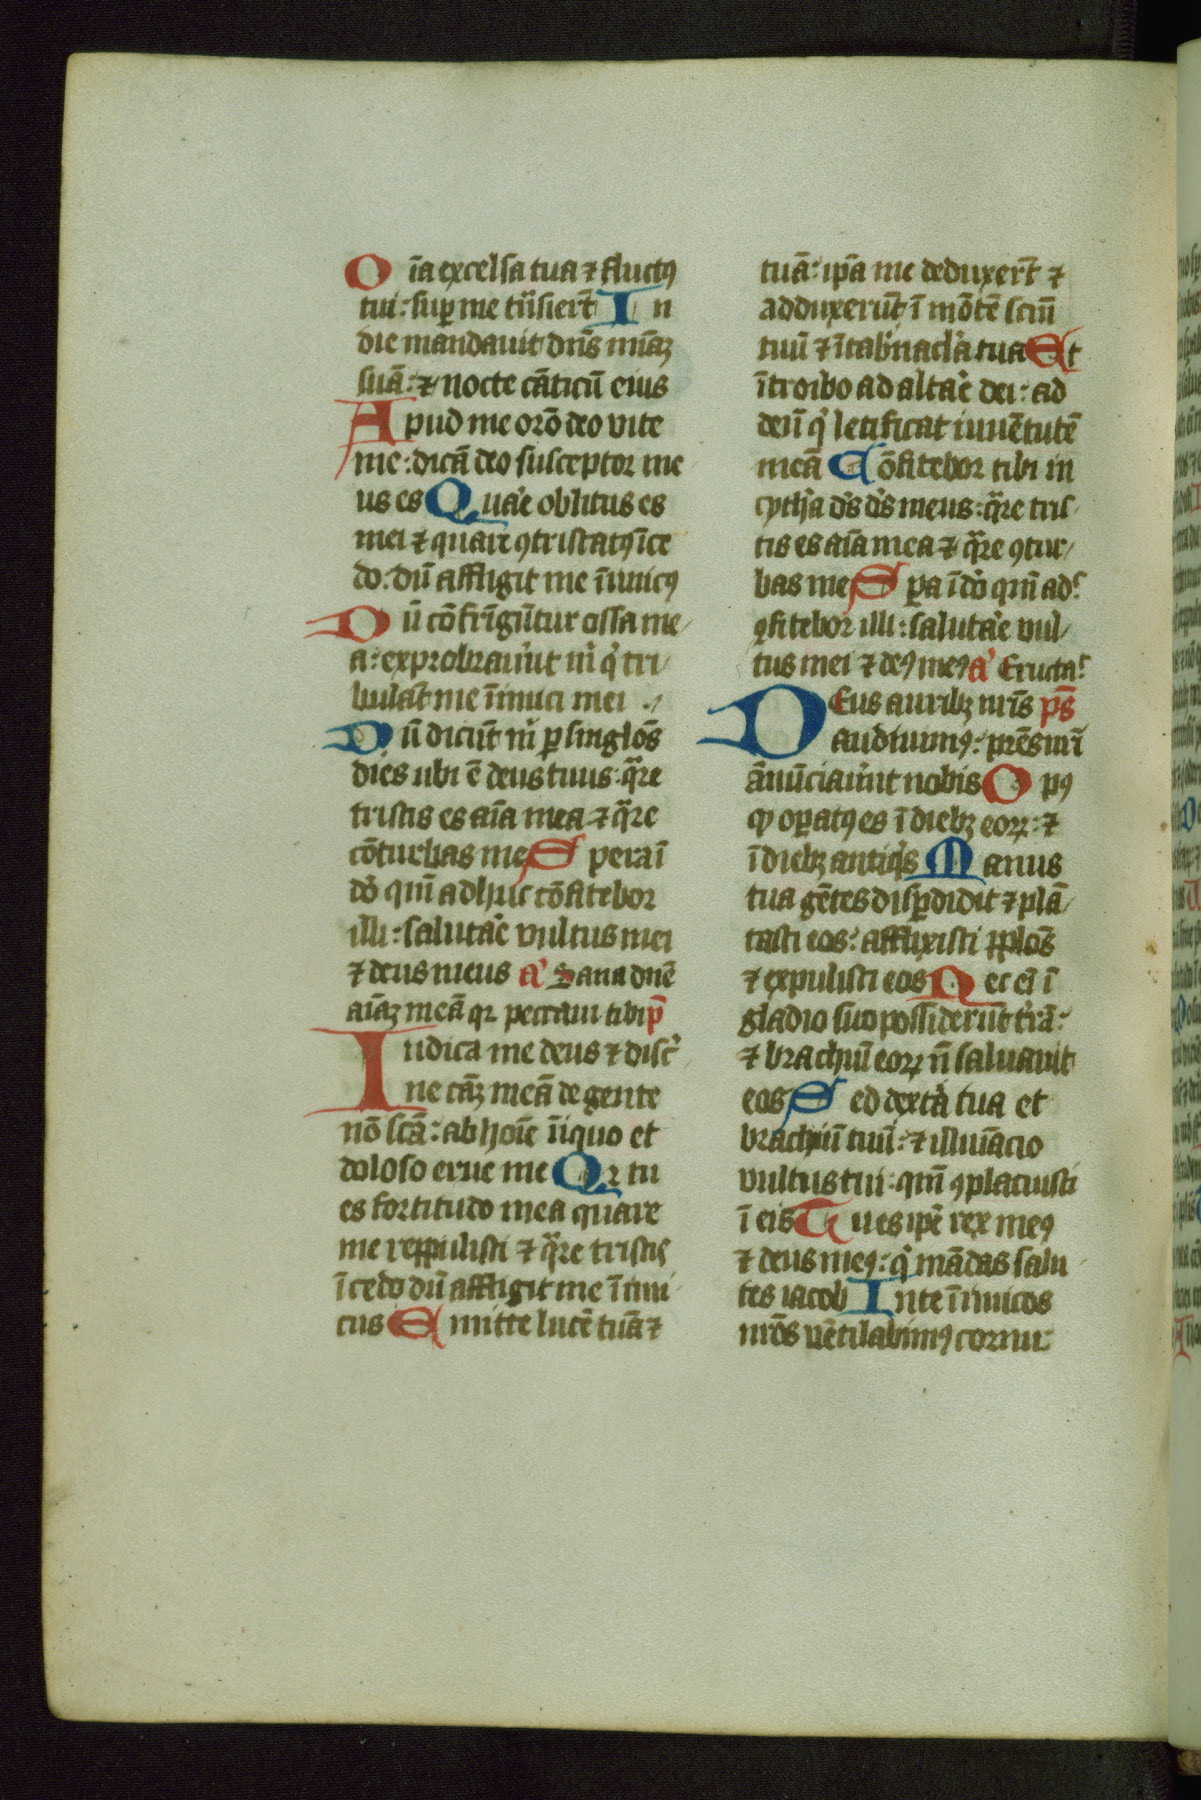 Oı̄a excelsa tua ⁊ fluctꝰ
tui: suꝑ me tn̄siert̄ In
die mandauit dn̄s miā̄ꝫ
suā: ⁊ nocte cāticū eius
Apud me orō deo vite
me: dicā deo susceptor me
us es Quaͬe oblitus es
mei ⁊ quare ꝯtristatꝰ īce
do: dū affligit me īimicꝰ
Dū cōfrīgūtur ossa me
a: exprobrauͬut m̄ qͥ tri
bulāt me īimici mei
Dū dicūt m̄ ꝑ singlōs
dies ubi ē deus tuus: qͣre
tristis es aīa mea ⁊ qͣre
cōturbas me Spera ī
dō qm̄ adhuc cōfitebor
illi: salutaͬe vultus mei
⁊ deus meus aͣ Sana dn̄e
aīaꝫ meā qꝛ peccaui tibi p̄
Iudica me deus ⁊ disc̉
ne cāꝫ meā de gente
nō scā: ab hoīe īiquo et
doloso erue me Qꝛ tu
es fortitudo mea quare
me reppulisti ⁊ qͣre tristis
īcedo dū affligit me īimi
cus Emitte lucē tuā ⁊
tuā: ip̄a me deduxert̄ ⁊
adduxerūt ī mōtē scm̄
tuū ⁊ ī tab̉nacl̉a tua Et
ītroibo ad altaͬe dei: ad
deū qͥ letificat iuuētutē
meā Cōfitebor tibi in
cythͣa ds̄ ds̄ meus: qͣre tris
tis es aīa mea ⁊ qͣre ꝯtur
bas me Spa ī dō qm̄ adͨ
ꝯfitebor illi: salutaͬe vul
tus mei ⁊ deꝰ meꝰ aͣ Eructaͨ
Deus auribꝫ nr̄is p̄s
audiuimꝰ: prēs nr̄i
ānūciauͬut nobis Opꝰ
qͩ oꝑatꝰ es ī diebꝫ eoꝝ: ⁊
ī diebꝫ antiqͥs Manus
tua gētes disꝑdidit ⁊ plā
tasti eos: afflixisti pplōs
⁊ expulisti eos Nec eī ī
gladio suo possiderūt tͬrā:
⁊ brachiū eoꝝ n̄ saluauit
eos Sed dexteͬa tua et
brachiū tuū: ⁊ illuīacio
vultus tui: qm̄ ꝯplacuisti
ī eis Tu es ipē rex meꝰ
⁊ deus meꝰ: qͥ mādas salu
tes iacob In te īimicos
nrōs vētilabimꝰ cornu: